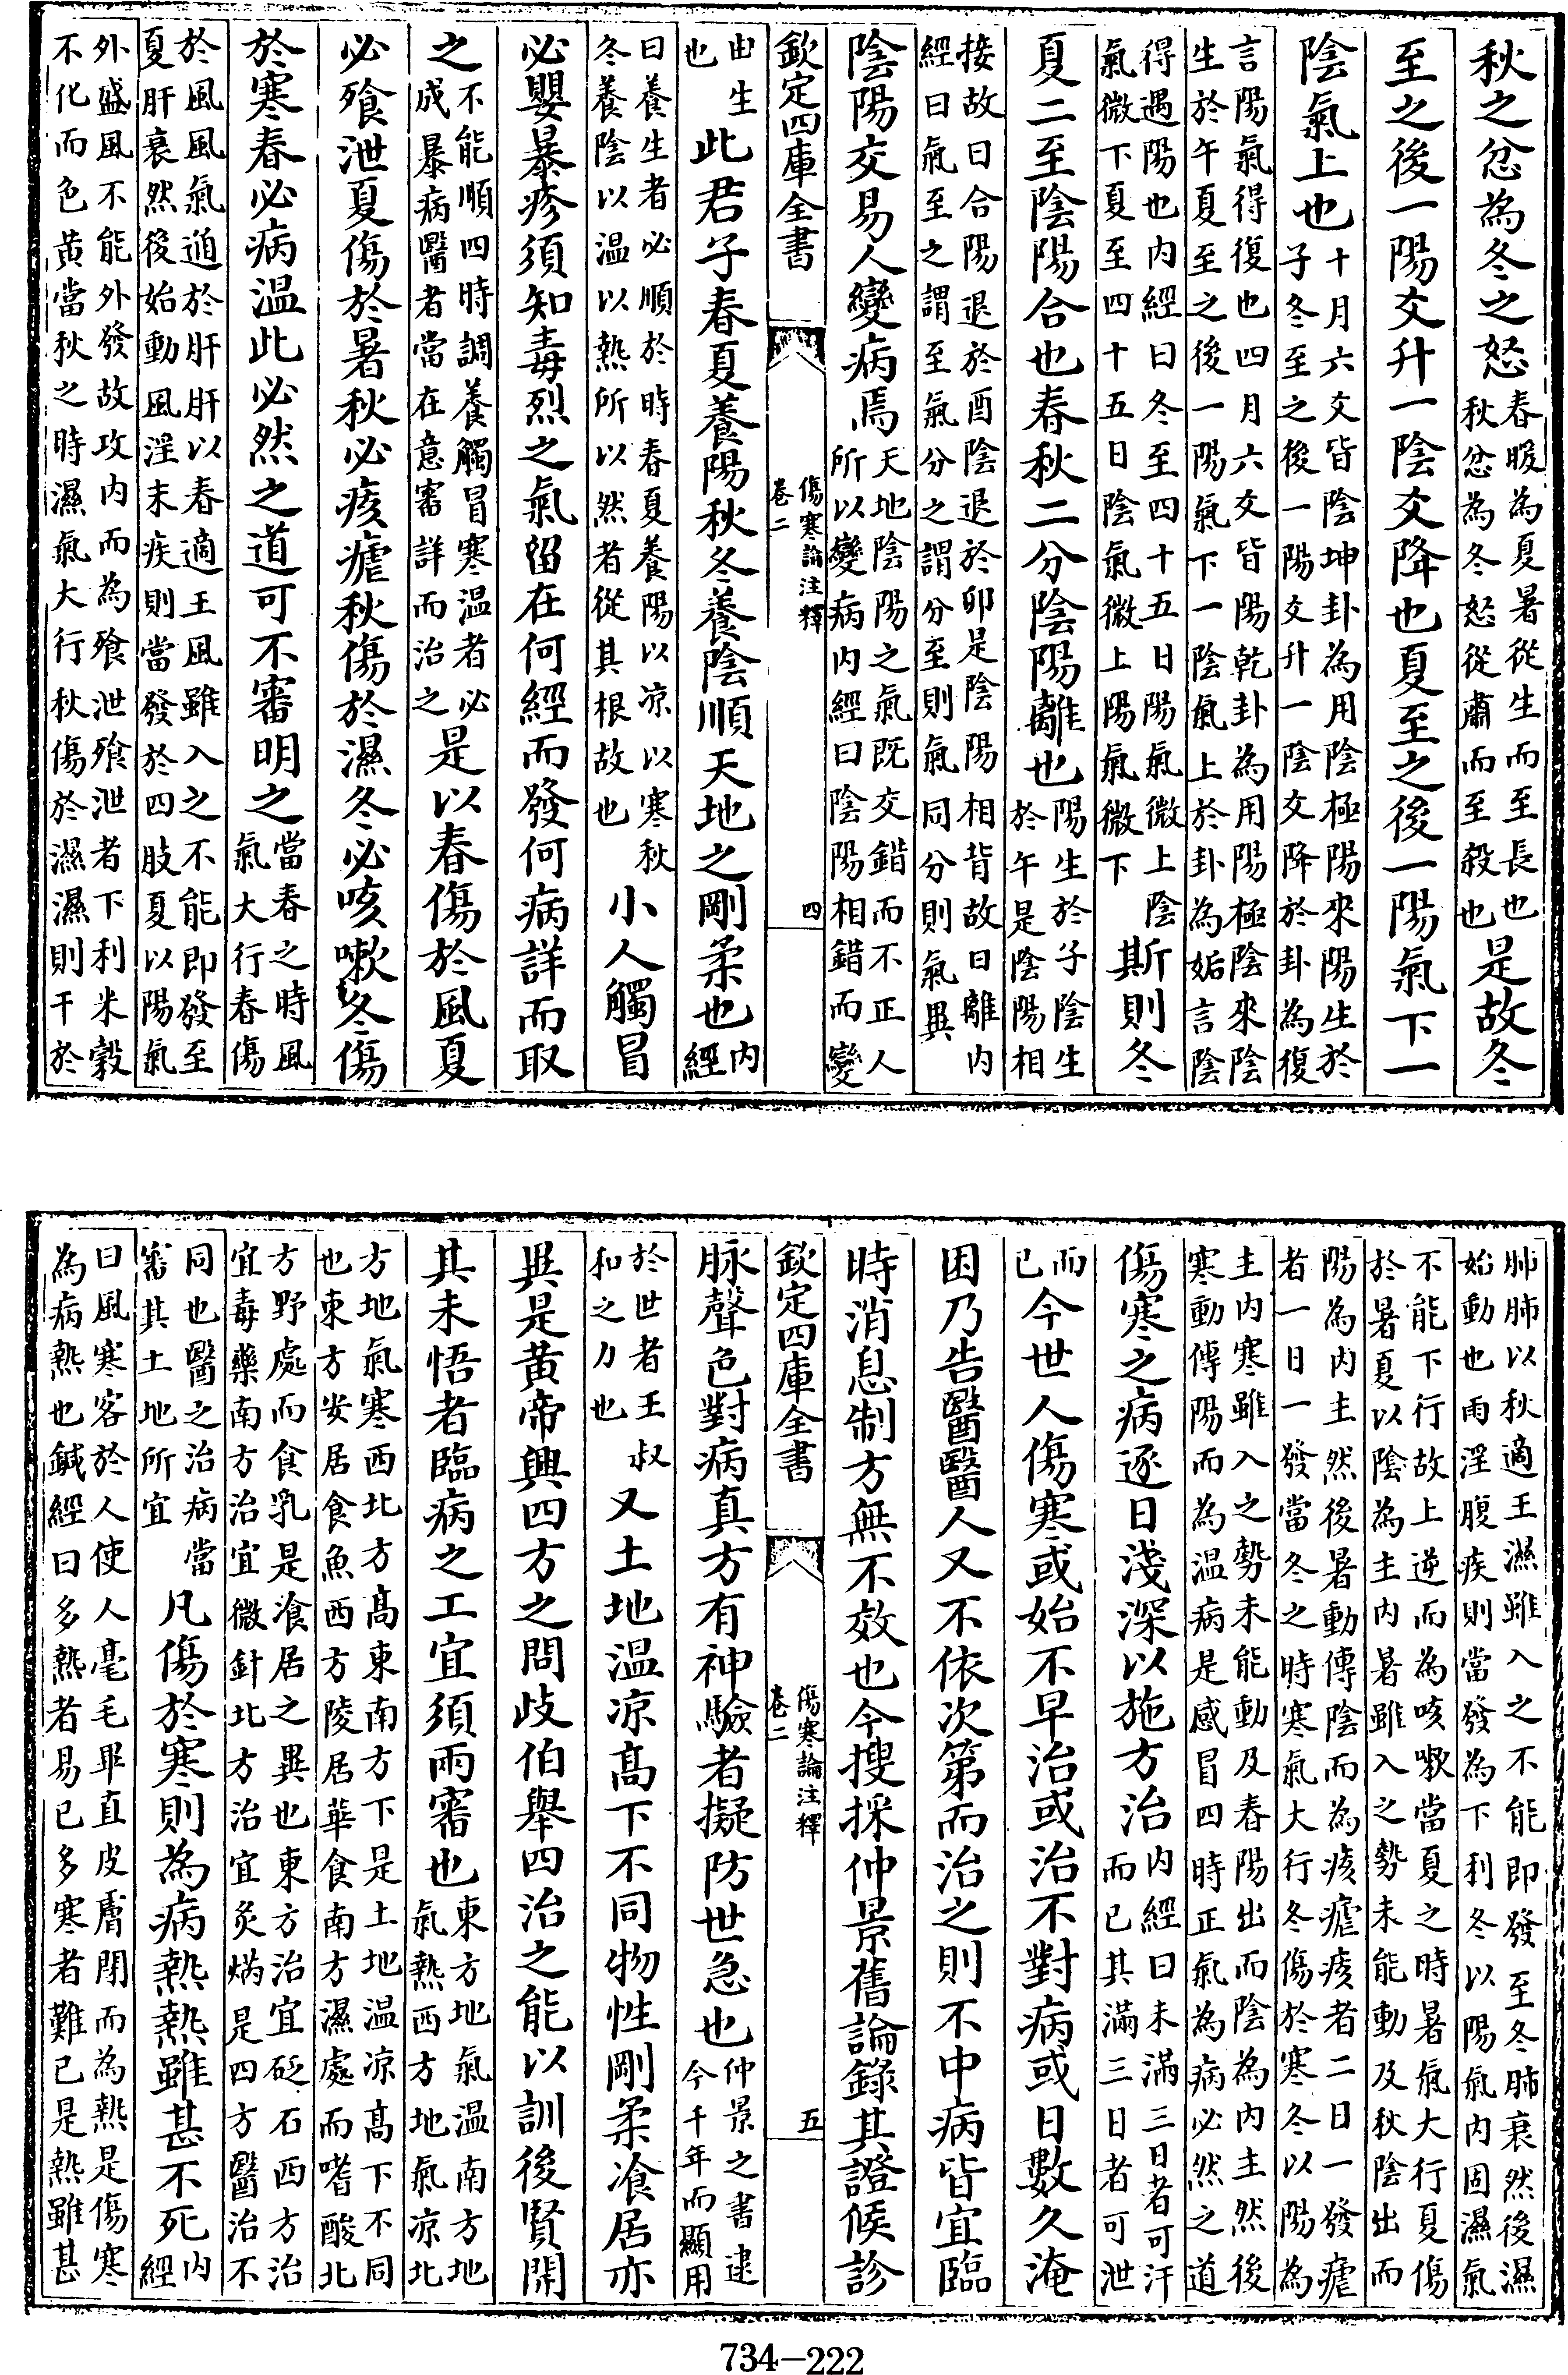 秋之忿為冬之怒春暖為夏暑從生而至長也秋忿為冬怒從肅而至殺也是故冬
至之後一陽爻升一陰爻降也夏至之後一陽氣下一
陰氣上也十月六爻皆陰坤卦為用陰極陽來陽生於子冬至之後一陽爻升一陰爻降於卦為復
言陽氣得復也四月六爻皆陽乾卦為用陽極陰來陰生於午夏至之後一陽氣下一陰氣上於卦為姤言陰
得遇陽也内經曰冬至四十五日陽氣微上陰氣微下夏至四十五日陰氣微上陽氣微下斯則冬
夏二至陰陽合也春秋二分陰陽離也陽生於子陰生於午是陰陽相
接故曰合陽退於酉陰退於卯是陰陽相背故曰離内經曰氣至之謂至氣分之謂分至則氣同分則氣異
陰陽交易人變病焉天地陰陽之氣既交錯而不正人所以變病内經曰陰陽相錯而變
欽定四庫全書 傷寒論注釋 卷二 四
由生也此君子春夏養陽秋冬養陰順天地之剛柔也内經
曰養生者必順於時春夏養陽以凉以寒秋冬養陰以温以熱所以然者從其根故也小人觸冒
必嬰暴疹須知毒烈之氣留在何經而發何病詳而取
之不能順四時調養觸冒寒温者必成暴病醫者當在意審詳而治之是以春傷於風夏
必飱泄夏傷於暑秋必痎瘧秋傷於濕冬必咳嗽冬傷
於寒春必病温此必然之道可不審明之當春之時風氣大行春傷
於風風氣逌於肝肝以春適王風雖入之不能即發至夏肝衰然後始動風淫末疾則當發於四肢夏以陽氣
外盛風不能外發故攻内而為飱泄飱泄者下利米穀不化而色黄當秋之時濕氣大行秋傷於濕濕則干於
肺肺以秋適王濕雖入之不能即發至冬肺衰然後濕始動也雨淫腹疾則當發為下利冬以陽氣内固濕氣
不能下行故上逆而為咳嗽當夏之時暑氣大行夏傷於暑夏以陰為主内暑雖入之勢未能動及秋陰出而
陽為内主然後暑動傳陰而為痎瘧痎者二日一發瘧者一日一發當冬之時寒氣大行冬傷於寒冬以陽為
主内寒雖入之勢未能動及春陽出而陰為内主然後寒動傳陽而為温病是感冒四時正氣為病必然之道
傷寒之病逐日淺深以施方治内經曰未滿三日者可汗而已其滿三日者可泄
而已今世人傷寒或始不早治或治不對病或日數久淹
困乃告醫醫人又不依次第而治之則不中病皆宜臨
時消息制方無不效也今搜採仲景舊論錄其證候診
欽定四庫全書 傷寒論注釋 卷二 五
脉聲色對病真方有神驗者擬防世急也仲景之書逮今千年而顯用
於世者王叔和之力也又土地温凉高下不同物性剛柔飡居亦
異是黄帝興四方之問歧伯舉四治之能以訓後賢開
其未悟者臨病之工宜須兩審也東方地氣温南方地氣熱西方地氣凉北
方地氣寒西北方高東南方下是土地温凉高下不同也東方安居食魚西方陵居華食南方濕處而嗜酸北
方野處而食乳是飡居之異也東方治宜砭石西方治宜毒藥南方治宜微針北方治宜灸焫是四方醫治不
同也醫之治病當審其土地所宜凡傷於寒則為病熱熱雖甚不死内經
曰風寒客於人使人毫毛畢直皮膚閉而為熱是傷寒為病熱也鍼經曰多熱者易已多寒者難已是熱雖甚
734—222